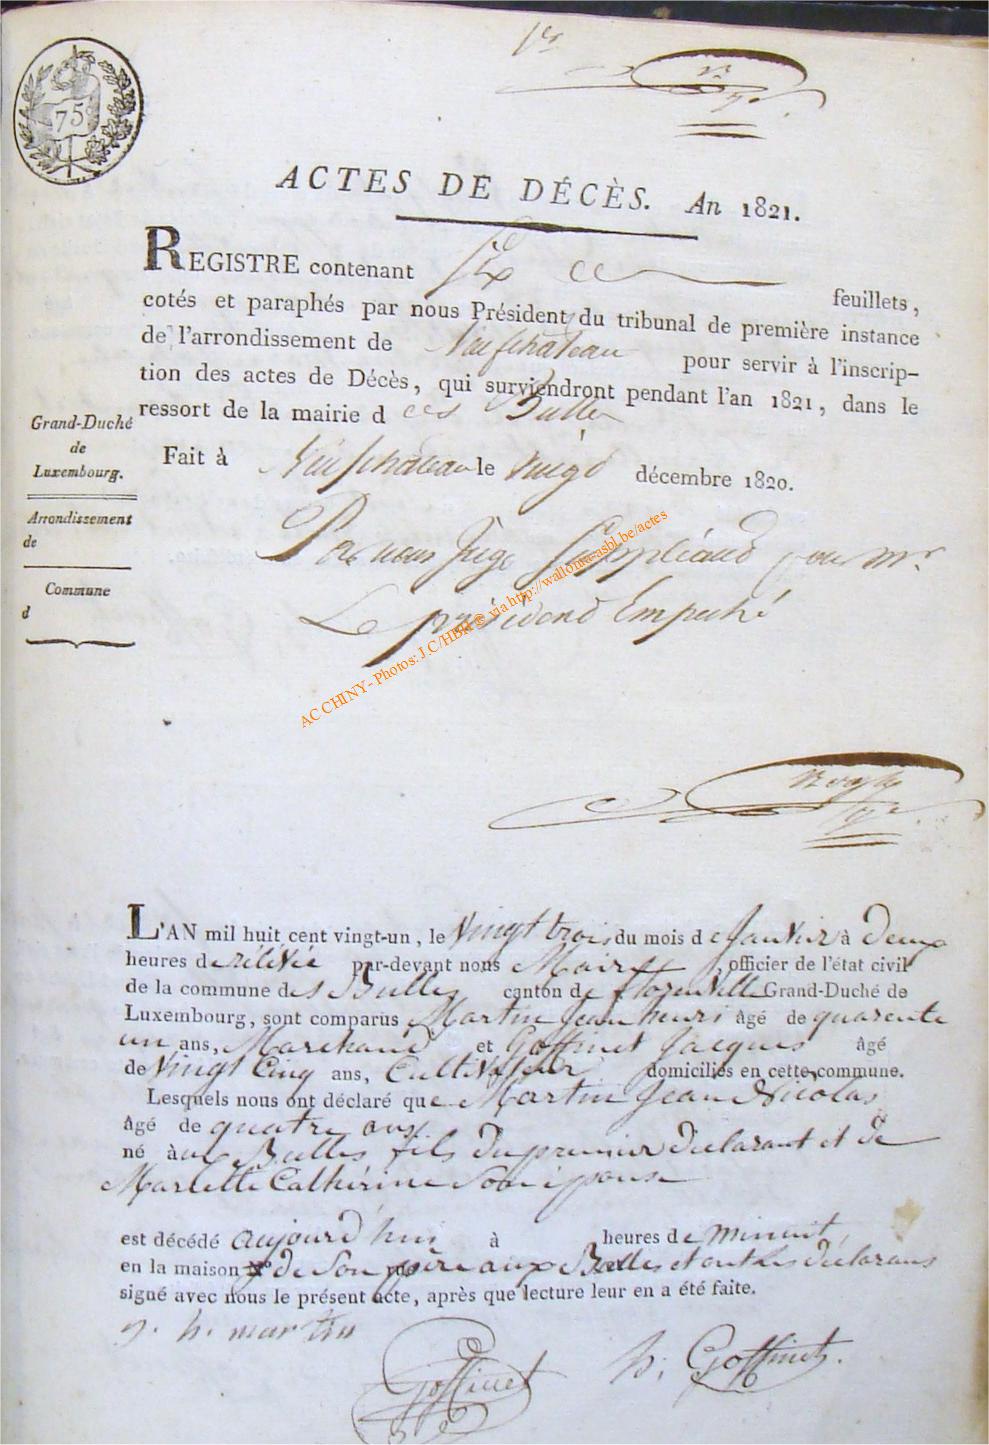 1er
75
ACTES DE DÉCÈS. An 1821.
REGISTRE contenant six feuillets,
cotés et paraphés par nous Président du tribunal de première instance
de l'arrondissement de Neufchateau pour servir à l'inscrip-
tion des actes de Décès, qui surviendront pendant l'an 1821, dans le
ressort de la mairie d es Bulles
Fait à Neufchateau le vingt décembre 1820.
Grand-Duché
de
Luxembourg.
Arrondissement
de
Commune
d
Par nous Juge Suppléand pour mr.
Le présidend Empeché
AC CHINY - Photos: J.C/HBH ® via http://wallonia-asbl.be/actes
L'AN mil huit cent vingt-un, le Vingt trois du mois de Janvier à Deux
heures de rélévée par-devant nous Maire, officier de l'état civil
de la commune des Bulles canton de florenville Grand-Duché de
Luxembourg, sont comparus Martin Jean henri âgé de quarente
un ans, Marchand et Goffinet Jacques âgé
de Vingt Cinq ans, Cultivateur domiciliés en cette commune.
Lesquels nous ont déclaré que Martin Jean Nicolas
âgé de quatre ans
né à ux Bulles fils du premier déclarant et de
Marlette Catherine Son épouse
est décédé aujourd'hui à heures de minuit
en la maison N° de Son père aux Bulles et ont les déclarans
signé avec nous le présent acte, après que lecture leur en a été faite.
j. h. martin
Goffinet
h. Goffinet.